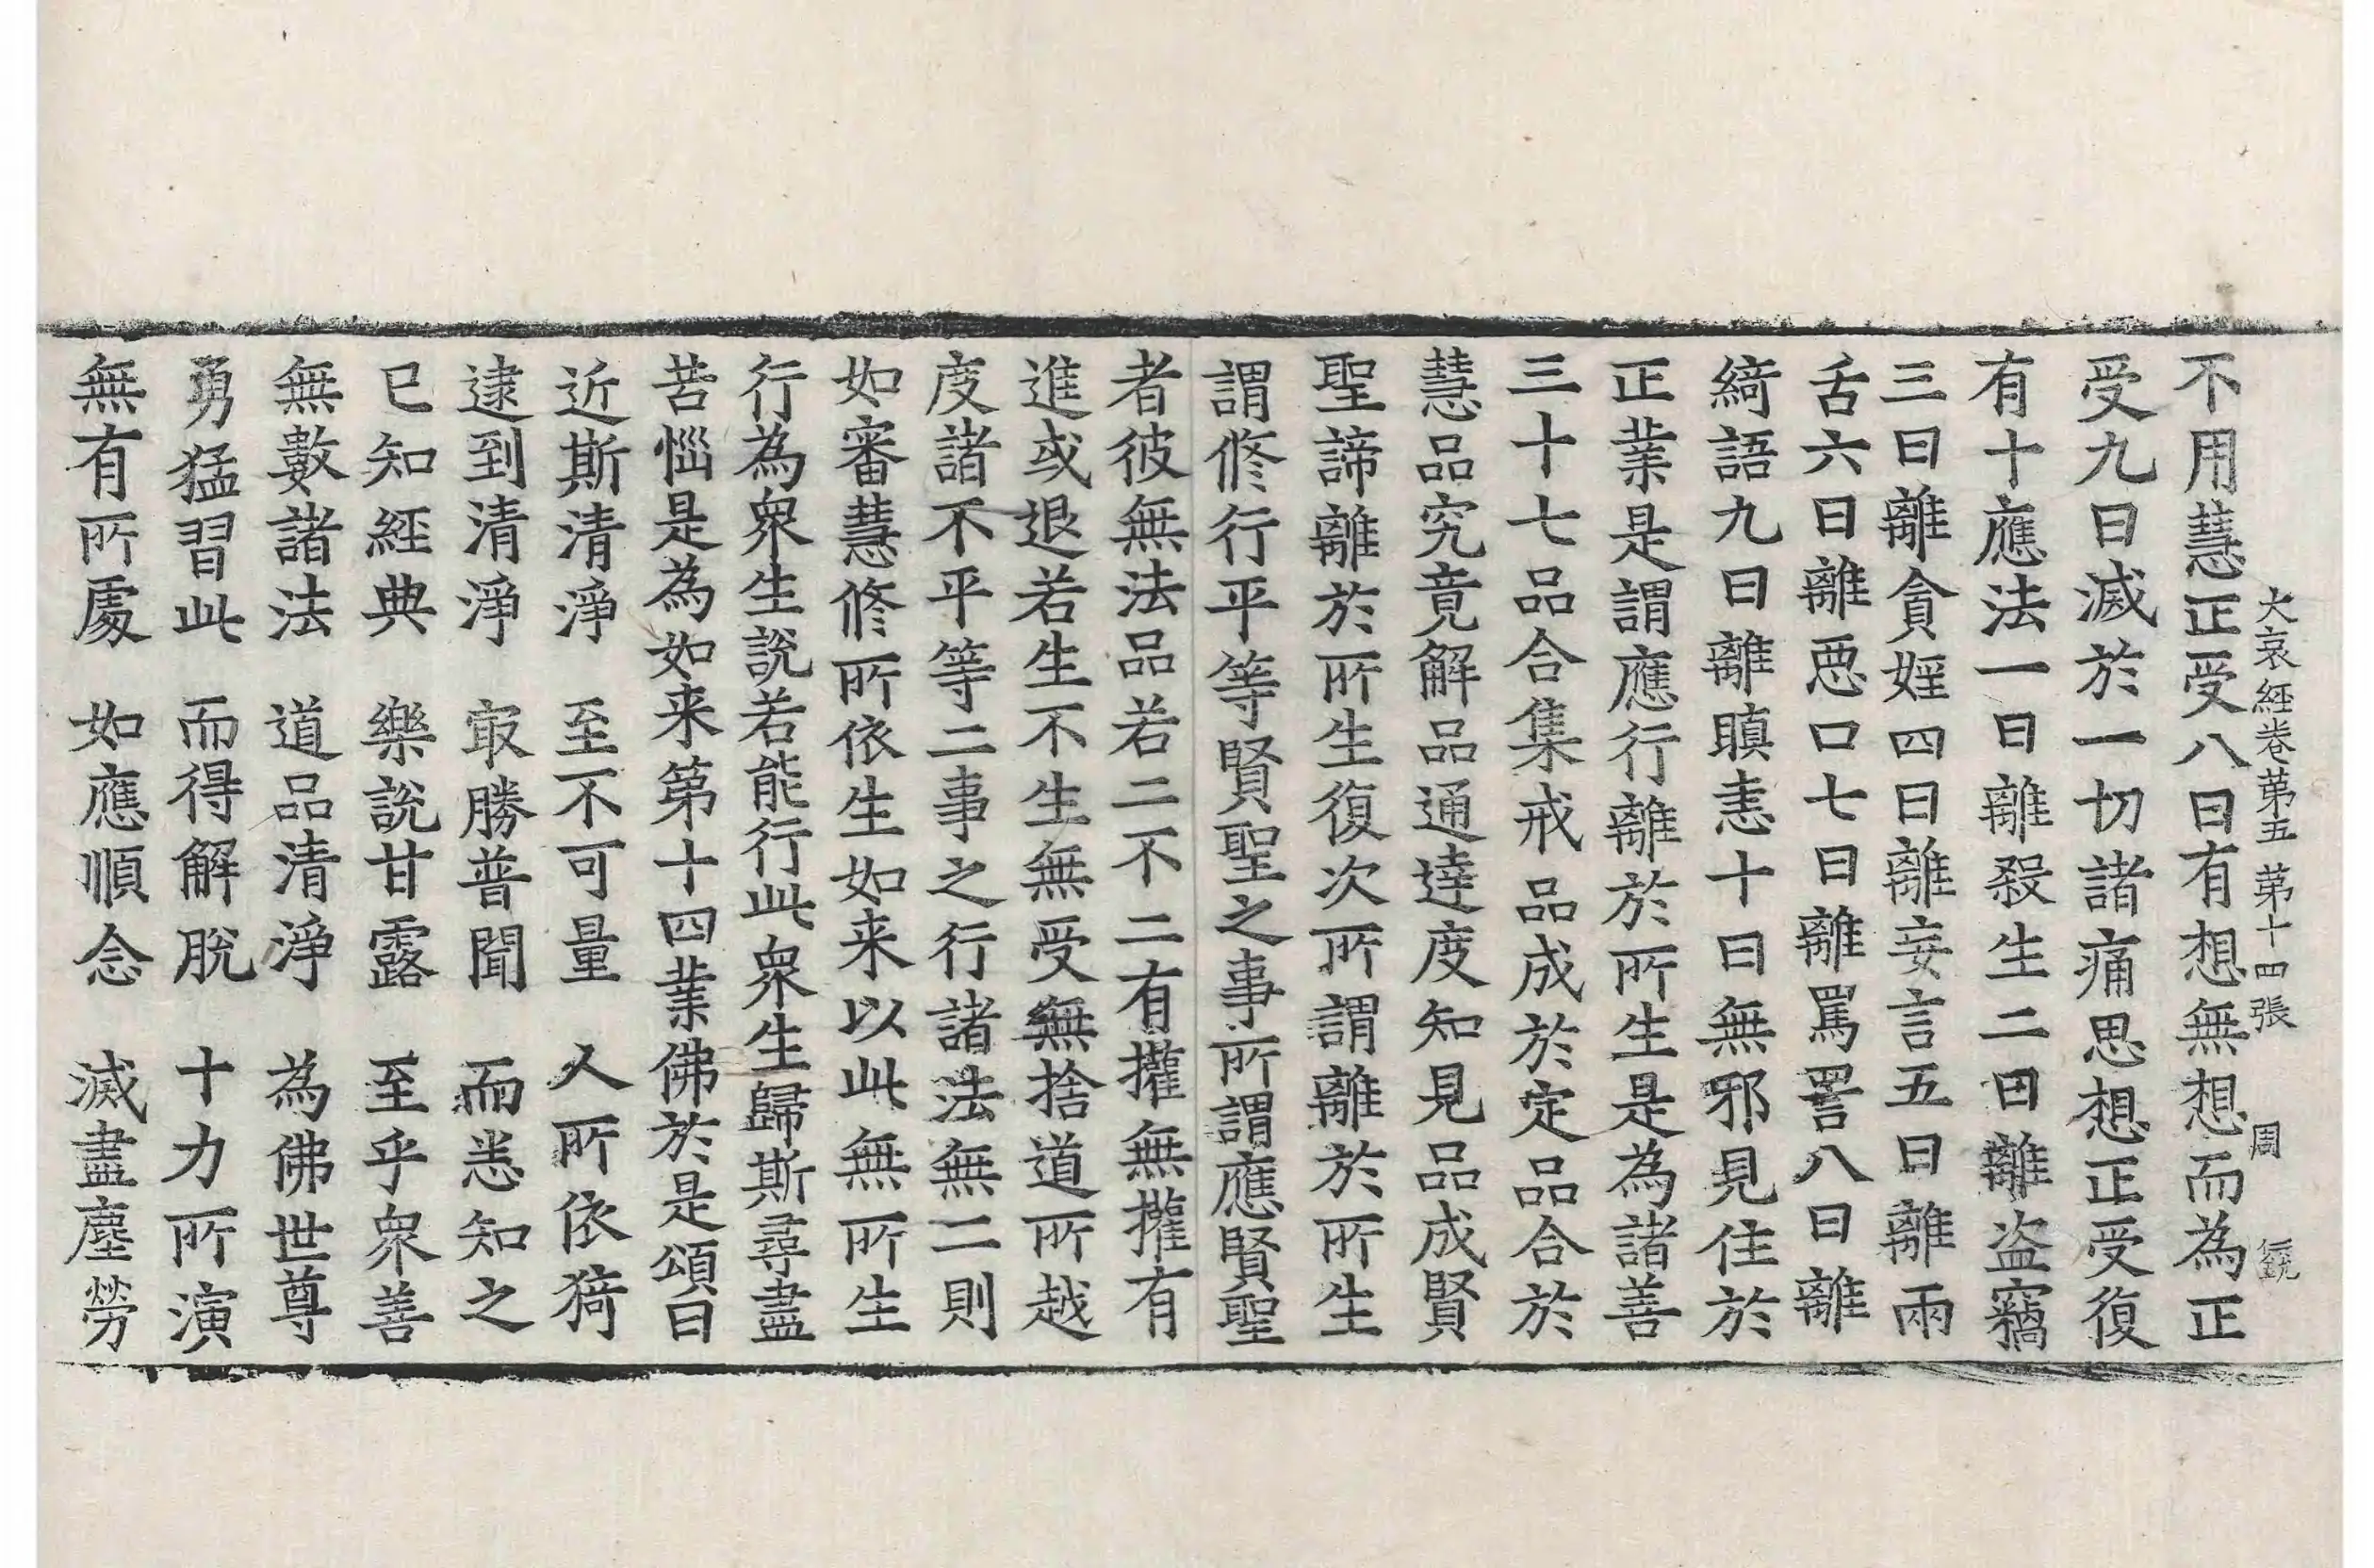 大哀經卷第五 第十四張 周
不用慧正受八曰有想無想而為正
受九曰滅於一切諸痛思想正受復
有十應法一曰離殺生二曰離盗竊
三曰離貪婬四曰離妄言五曰離兩
舌六曰離惡口七曰離罵詈八曰離
綺語九曰離瞋恚十曰無邪見住於
正業是謂應行離於所生是為諸善
三十七品合集戒品成於定品合於
慧品究竟解品通達度知見品成賢
聖諦離於所生復次所謂離於所生
謂修行平等賢聖之事所謂應賢聖
者彼無法品若二不二有攉無攉有
進或退若生不生無受無捨道所越
度諸不平等二事之行諸法無二則
如審慧修所依生如来以此無所生
行為衆生說若能行此衆生歸斯尋盡
苦惱是為如来第十四業佛於是頌曰
近斯清淨 至不可量 人所依猗
逮到清淨 㝡勝普聞 而悉知之
已知經典 樂說甘露 至乎衆善
無數諸法 道品清淨 為佛世尊
勇猛習此 而得解脫 十力所演
無有所處 如應順念 滅盡塵勞